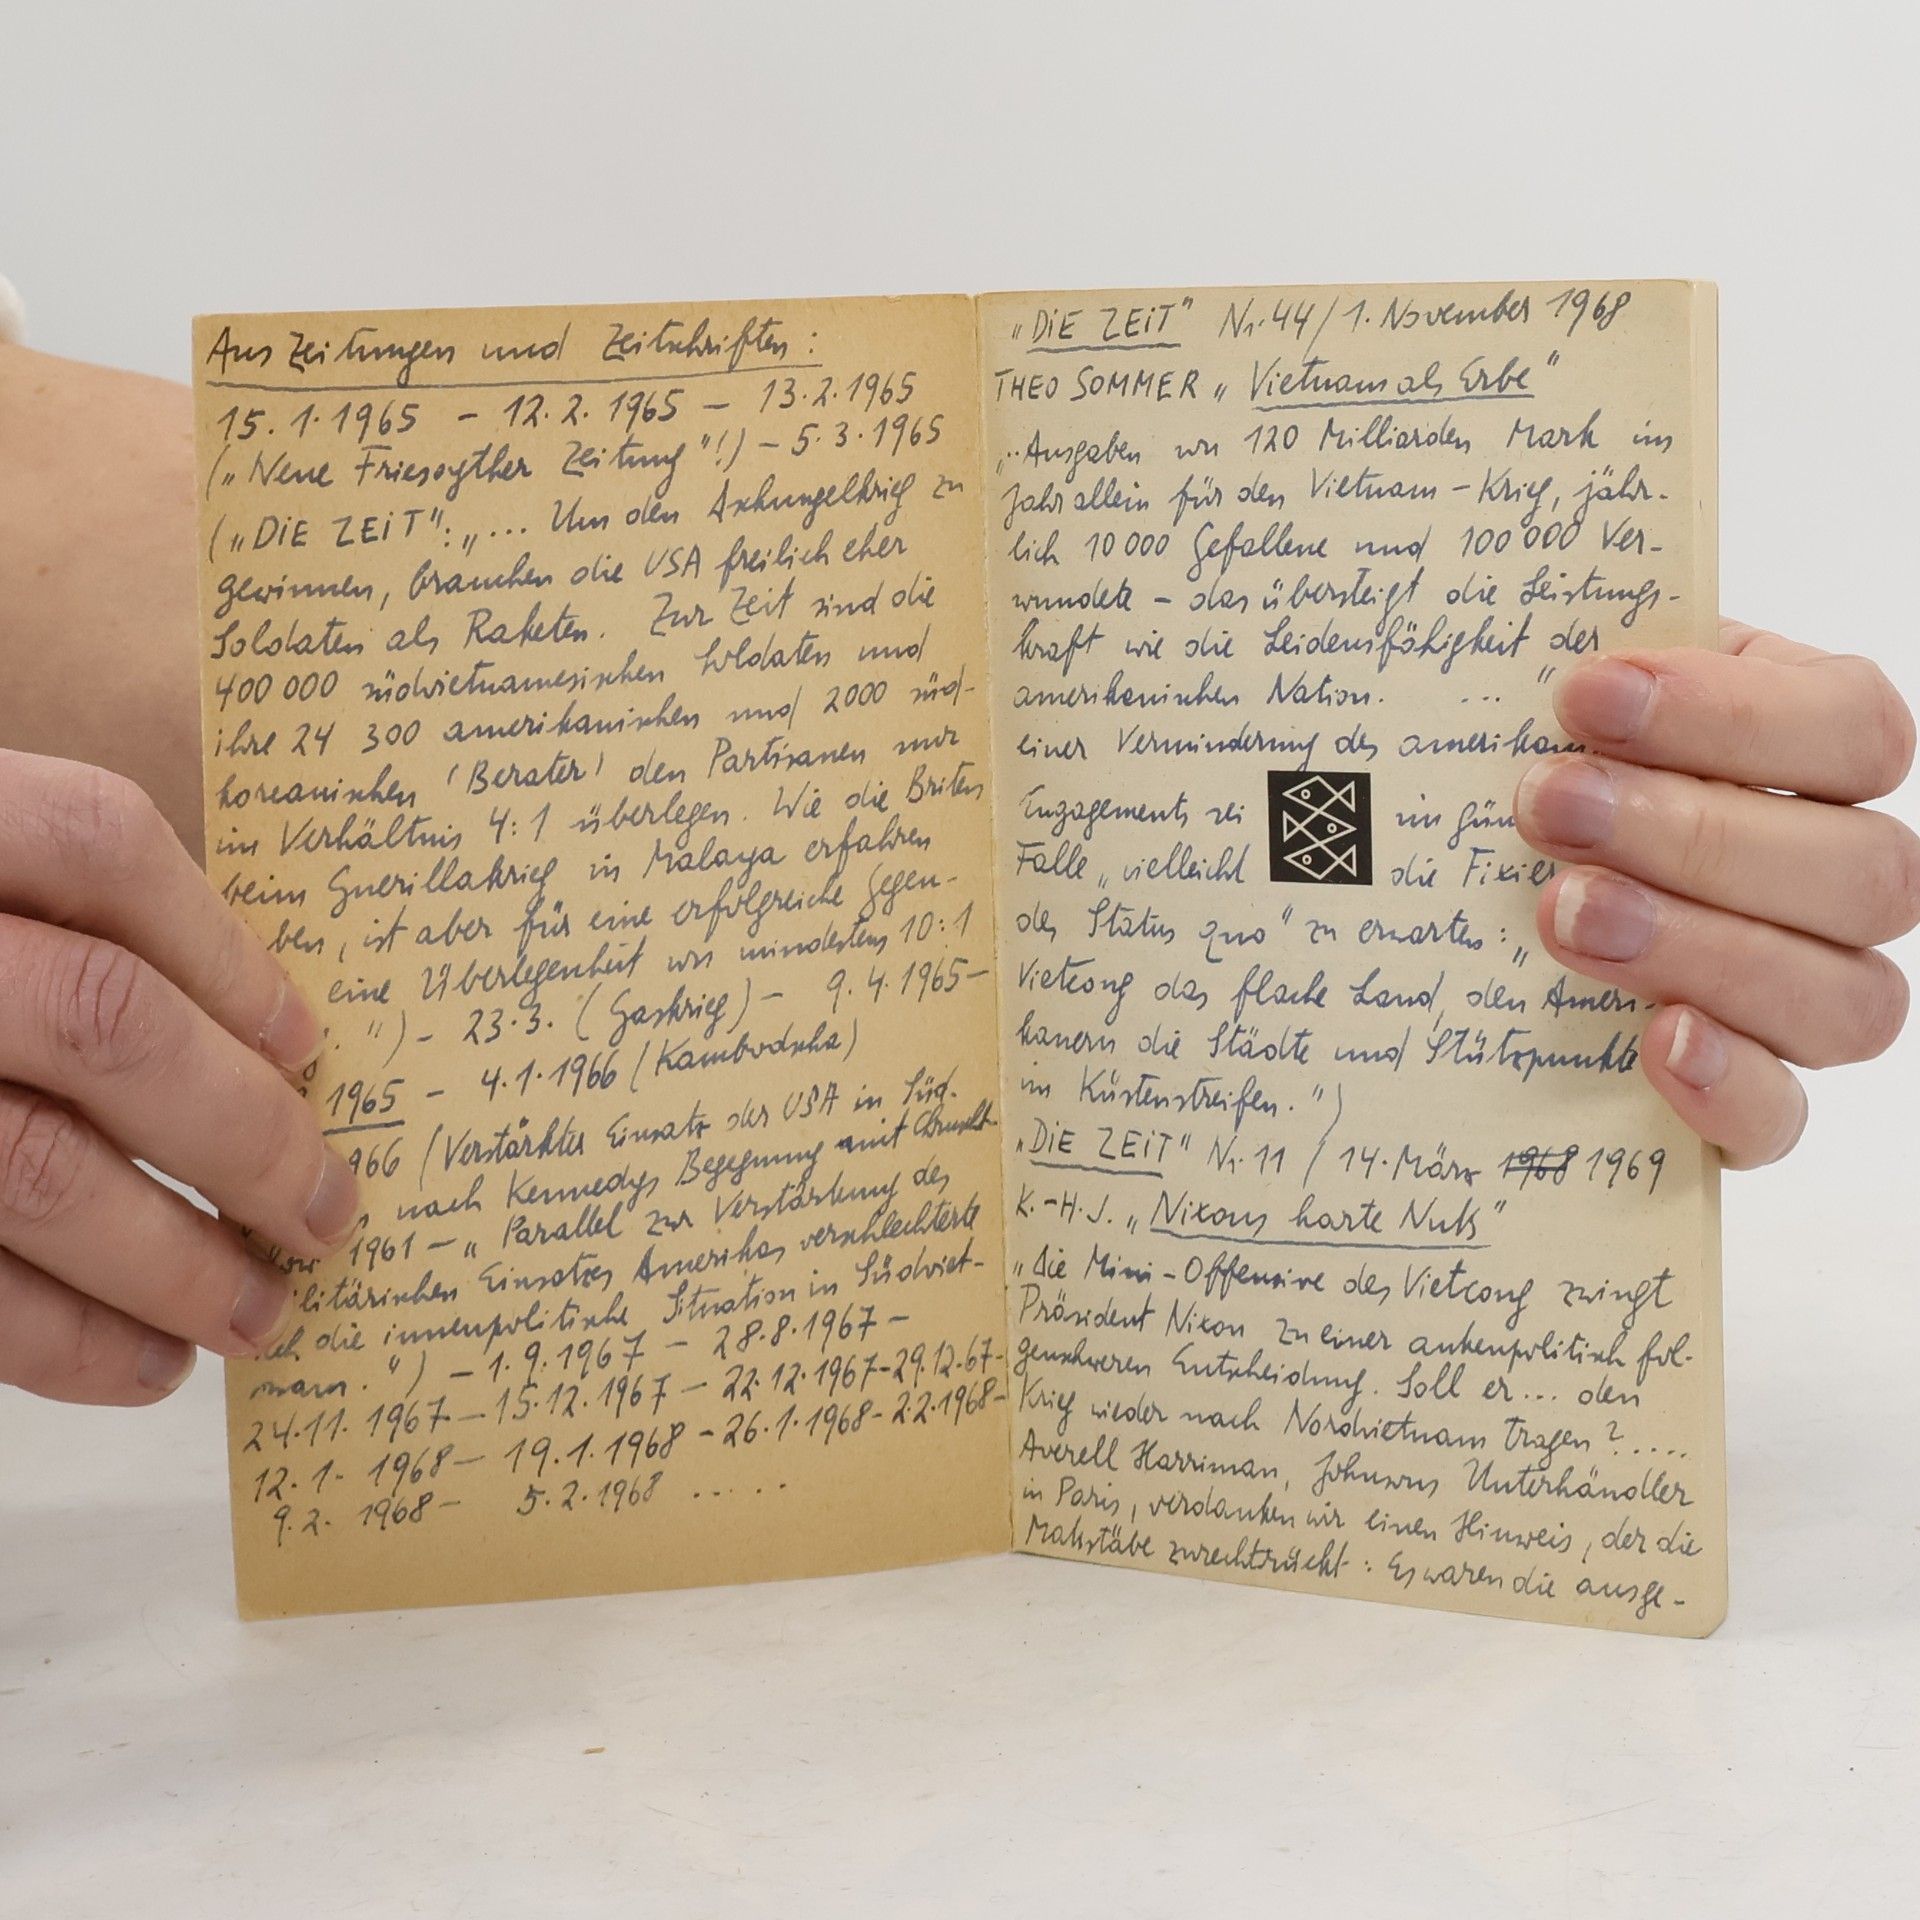 Aus Zeitungen und Zeitschriften:
15.1.1965 - 12.2.1965 - 13.2.1965
(„Neue Friesoyther Zeitung"!) - 5.3.1965
(„DIE ZEIT": „... Um den Dschungelkrieg zu
gewinnen, brauchen die USA freilich eher
Soldaten als Raketen. Zur Zeit sind die
400 000 südvietnamesischen Soldaten und
ihre 24 300 amerikanischen und 2000 süd-
koreanischen 'Berater' den Partisanen nur
im Verhältnis 4:1 überlegen. Wie die Briten
beim Guerillakrieg in Malaya erfahren
ben, ist aber für eine erfolgreiche Gegen-
eine Überlegenheit von mindestens 10:1
. ") - 23.3. (Gaskrieg) - 9.4.1965 -
1965 - 4.1.1966 (Kambodscha)
966 (Verstärkter Einsatz der USA in Süd-
nach Kennedys Begegnung mit Chruscht-
1961 - „Parallel zur Verstärkung des
litärischen Einsatzes Amerikas verschlechterte
die innenpolitische Situation in Südviet-
") - 1.9.1967 - 28.8.1967 -
24.11.1967 - 15.12.1967 - 22.12.1967 - 29.12.67 -
12.1.1968 - 19.1.1968 - 26.1.1968 - 2.2.1968 -
9.2.1968 - 5.2.1968 .....
„DIE ZEIT" Nr. 44 / 1. November 1968
THEO SOMMER „Vietnam als Erbe"
„..Ausgaben von 120 Milliarden Mark im
Jahr allein für den Vietnam-Krieg, jähr-
lich 10 000 Gefallene und 100 000 Ver-
wundete - das übersteigt die Leistungs-
kraft wie die Leidensfähigkeit der
amerikanischen Nation. ... "
einer Verminderung des amerikan
Engagements sei im gün
Falle „vielleicht die Fixier
des Status quo" zu erwarten: „
Vietcong das flache Land, den Ameri-
kanern die Städte und Stützpunkte
im Küstenstreifen.")
„DIE ZEIT" Nr. 11 / 14. März 1968 1969
K.-H. J. „Nixons harte Nuß"
„Die Mini-Offensive des Vietcong zwingt
Präsident Nixon zu einer außenpolitisch fol-
genschweren Entscheidung. Soll er... den
Krieg wieder nach Nordvietnam tragen? ....
Averell Harriman, Johnsons Unterhändler
in Paris, verdanken wir einen Hinweis, der die
Maßstäbe zurechtrückt: Es waren die ausge-